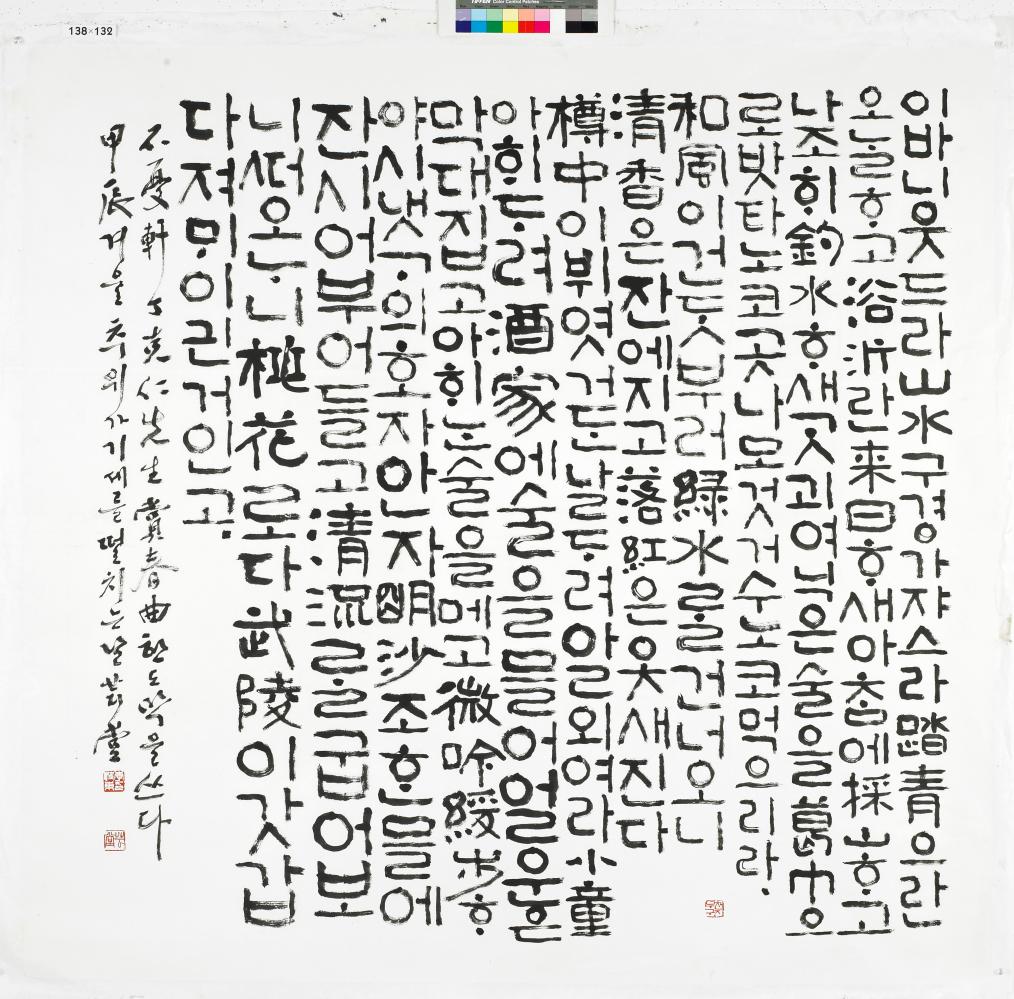 TIFFEN Color Control Patches
138×132
이바니웃드라山水구경가쟈스라踏青으란
오ᄂᆞᆯᄒᆞ고浴沂란来日ᄒᆞ새아ᄎᆞᆷ에採山ᄒᆞ고
나조ᄒᆡ釣水ᄒᆞ새ᄀᆞᆺ괴여닉은술을葛巾으
로밧타노코곳나모것거수노코먹으리라.
和風이건ᄃᆞᆺ부러綠水ᄅᆞᆯ건너오니
清香은잔에지고落紅은옷새진다
樽中이뷔엿거든날ᄃᆞ려알외여라小童
아ᄒᆡᄃᆞ려酒家에술을믈어얼운은
막대집고아ᄒᆡᄂᆞᆫ술을메고微吟緩步ᄒᆞ
야시냇ᄀᆞ의호자안자明沙조ᄒᆞᆫ믈에
잔시어부어들고清流ᄅᆞᆯ굽어보
니ᄯᅥ오ᄂᆞ니桃花로다武陵이갓갑
다져ᄆᆡ이긘거인고.
不憂軒丁克仁先生賞春曲한도막을쓰다
甲辰겨울추위가기세를떨치는날芸堂